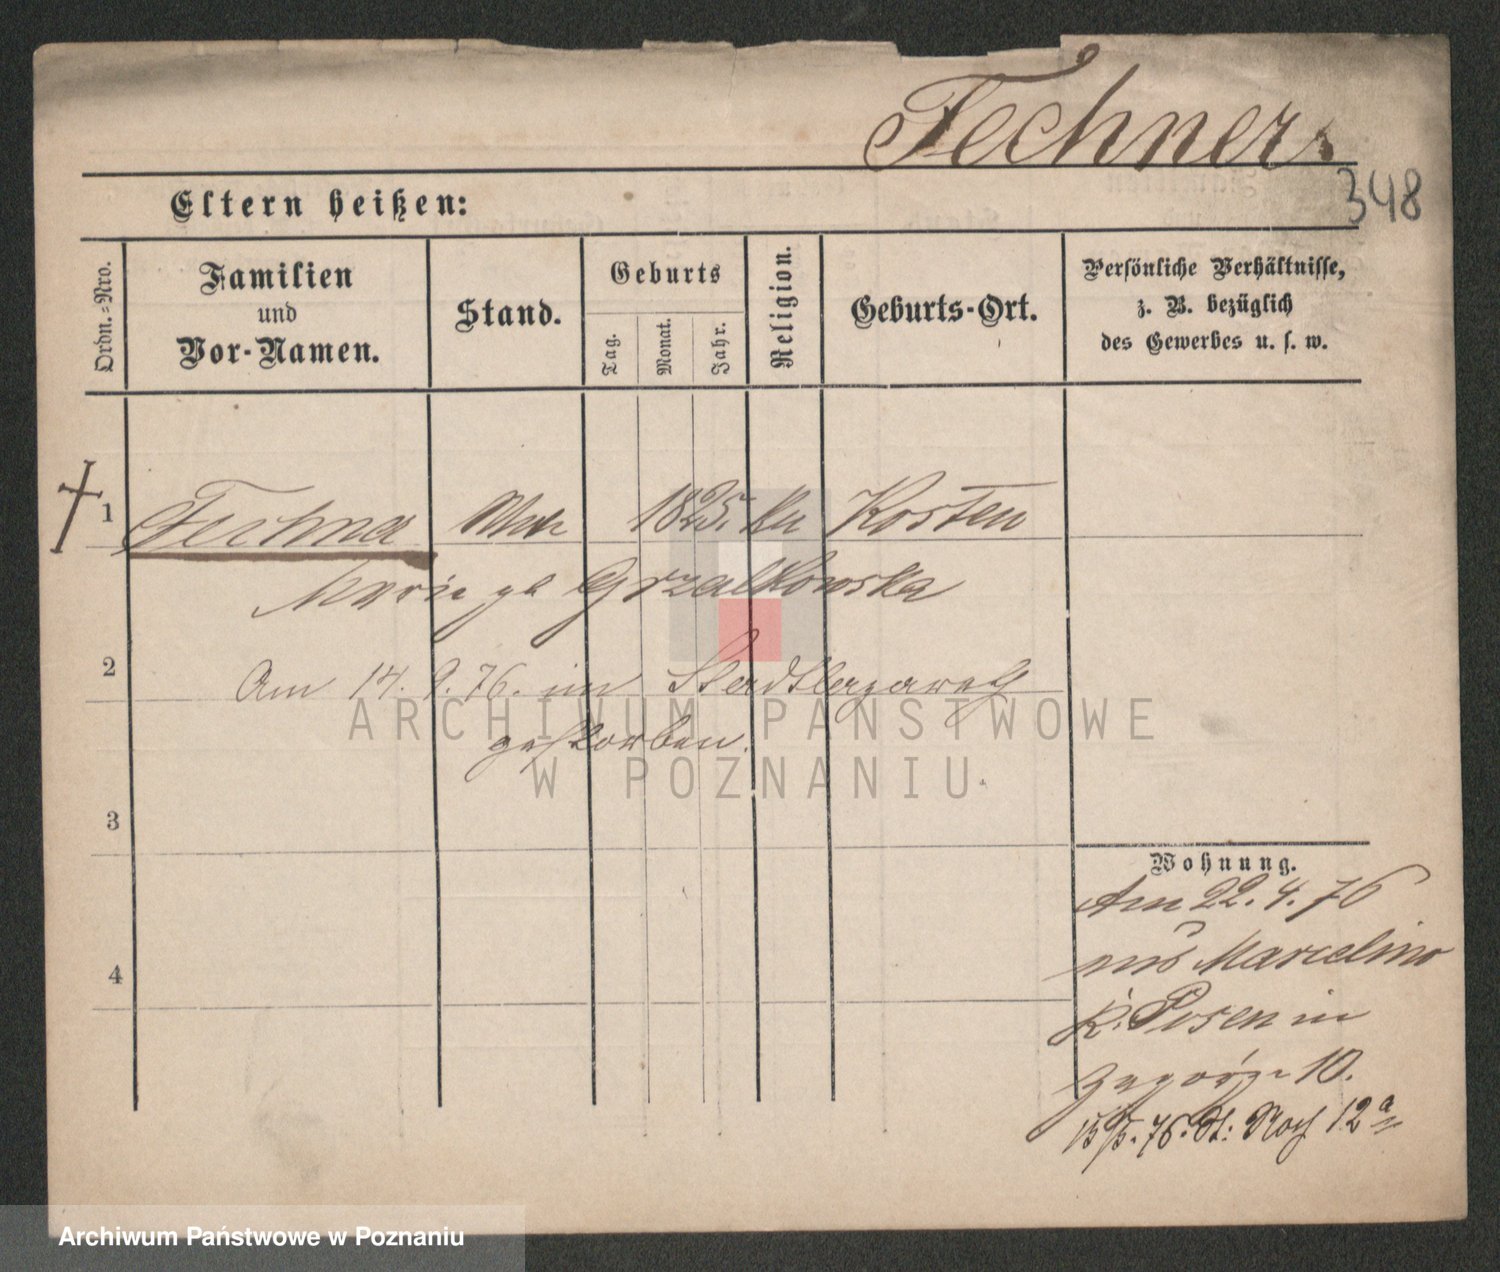 Fechner
348
Eltern heißen:
Ordn.-Nro.
Familien
und
Vor-Namen.
Stand.
Geburts
Tag.
Monat.
Jahr.
Religion.
Geburts-Ort.
Persönliche Verhältnisse,
z. B. bezüglich
des Gewerbes u. s. w.
1
Fechner 1825. Kosten
Marie gb Grzalkowska
2
Am 14. 9. 76. im Stadtlazareth
gestorben.
ARCHIWUM PAŃSTWOWE
W POZNANIU
3
Wohnung.
Am 22. 4. 76
aus Marcelino
K. Posen in
4
Zagórze 10.
76. St: Roch 12a
Archiwum Państwowe w Poznaniu